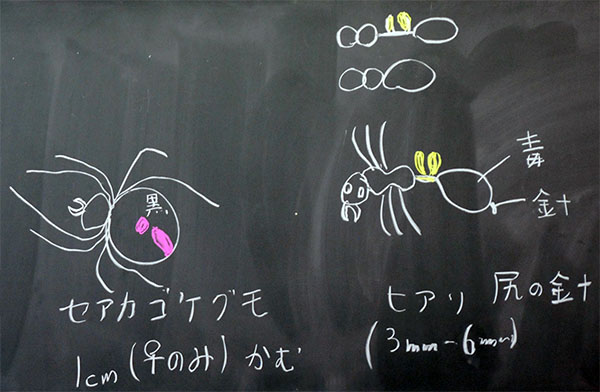 黒
セアカゴケグモ
1cm (♀のみ) かむ
毒
針
ヒアリ 尻の針
(3mm-6mm)